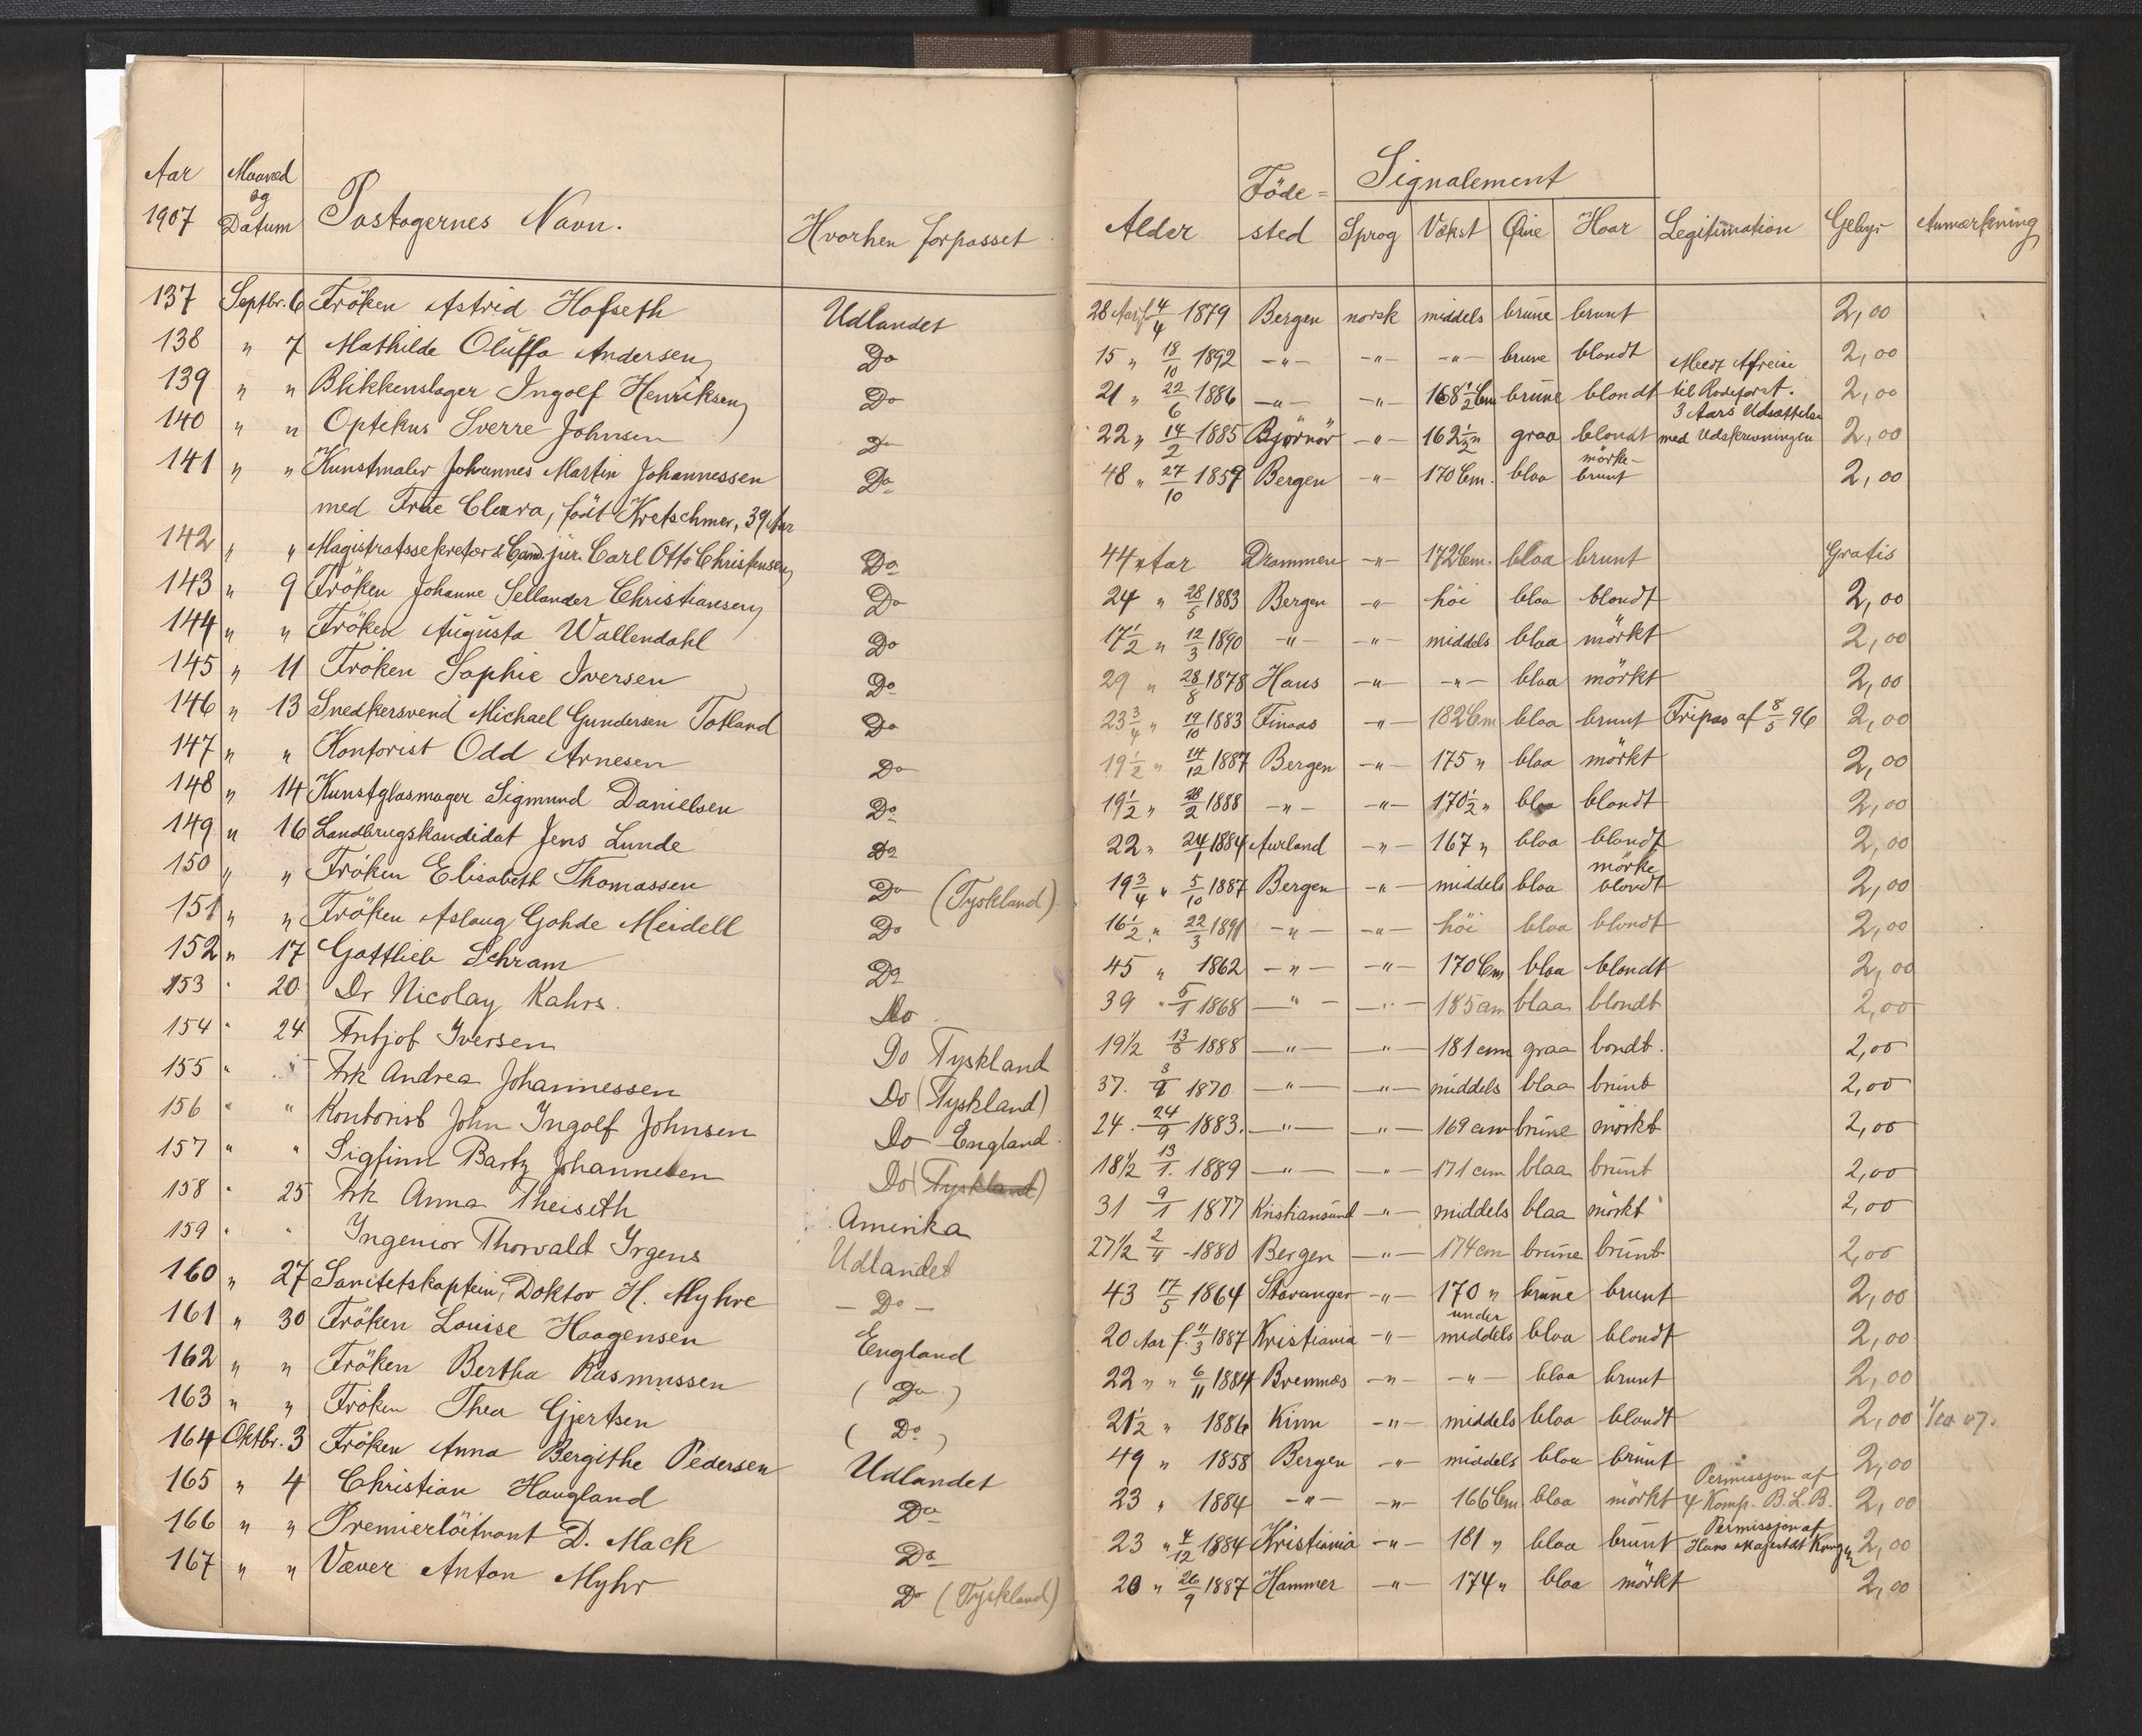 Aar 1907 Maaned og Datum Pastagernes Navn. Hvorhen forpasset Alder Föde-sted Signalement Sprog Vækst Øine Haar Legitimation Gebyr Anmærkning
137 Septbr. 6 Fröken Astrid Hofseth Udlandet 28 Aar f. 4/4 1879 Bergen norsk middels brune brunt 2,00
138 " 7 Mathilde Oluffa Andersen Do 15 " 18/10 1892 -"- -"- -"- brune blondt 2,00
139 " " Blikkenslager Ingolf Henriksen Do 21 " 22/6 1886 -"- -"- 168 1/2 Cm brune blondt Afreise til 2,00
140 " " Optikus Sverre Johnsen Do 22 " 14/2 1885 Björnör -"- 162 1/2 " graa blondt 3 Aars Udsættelse med Udskrevningen 2,00
141 " " Kunstmaler Johannes Martin Johannessen Do 48 " 27/10 1859 Bergen -"- 170 Cm. blaa mörke-brunt 2,00
med Frue Clara, födt Kretschmer, 39 Aar
142 " " Magistratssekretær & Cand. jur. Carl Otto Christensen Do 44 " Aar Drammen -"- 172 Cm. blaa brunt Gratis
143 " 9 Fröken Johanne Sellander Christiansen Do 24 " 28/5 1883 Bergen -"- höi blaa blondt 2,00
144 " " Fröken Augusta Wallendahl Do 17 1/2 " 12/3 1890 -"- -"- middels blaa mörkt 2,00
145 " 11 Fröken Sophie Iversen Do 29 " 28/8 1878 Haus -"- -"- blaa mörkt 2,00
146 " 13 Snedkersvend Michael Gundersen Totland Do 23 3/4 " 19/10 1883 Finaas -"- 182 Cm blaa brunt Fripas af 8/5 96 2,00
147 " " Kontorist Odd Arnesen Do 19 1/2 " 14/12 1887 Bergen -"- 175 " blaa mörkt 2,00
148 " 14 Kunstglasmager Sigmund Danielsen Do 19 1/2 " 28/2 1888 -"- -"- 170 1/2 " blaa blondt 2,00
149 " 16 Landbrugskandidat Jens Lunde Do 22 " 24/1 1884 Aurland -"- 167 " blaa blondt 2,00
150 " " Fröken Elisabeth Thomassen Do (Tyskland) 19 3/4 " 5/10 1887 Bergen -"- middels blaa mörke blondt 2,00
151 " " Fröken Aslaug Gohde Meidell Do 16 1/2 " 22/3 1891 -"- -"- höi blaa blondt 2,00
152 " 17 Gottlieb Schram Do 45 " 1862 -"- -"- 170 Cm blaa blondt 2,00
153 " 20 Dr Nicolay Kahrs. Do 39 " 5/1 1868 -"- -"- 185 cm blaa blondt 2,00
154 " 24 Fritjof Iversen Do Tyskland 19 1/2 13/8 1888 -"- -"- 181 cm graa bondt. 2,00
155 " " Frk Andrea Johannessen Do (Tyskland) 37. 3/9 1870 -"- -"- middels blaa brunt 2,00
156 " " Kontorist John Ingolf Johnsen Do England 24. 24/9 1883. -"- -"- 169 cm brune mörkt 2,00
157 " " Sigfinn Bartz Johannesen Do (Tyskland) 18 1/2 13/1 1889 -"- -"- 171 cm blaa brunt 2,00
158 " 25 Frk Anna Theiseth Amerika 31 9/1 1877 Kristiansund -"- middels blaa mörkt 2,00
159 " " Ingeniør Thorvald Irgens Udlandet 27 1/2 2/4 - 1880 Bergen -"- 174 cm brune brunt 2,00
160 " 27 Sanitetskaptein, Doktor H. Myhre - Do - 43 17/5 1864 Stavanger -"- 170 " brune brunt 2,00
161 " 30 Fröken Louise Haagensen England 20 Aar f. 11/3 1887 Kristiania -"- under middels blaa blondt 2,00
162 " " Fröken Bertha Rasmussen ( Do ) 22 " " 6/11 1884 Bremnæs -"- -"- blaa brunt 2,00
163 " " Fröken Thea Gjertsen ( Do ) 21 1/2 " 1886 Kinn -"- middels blaa blondt 2,00 1/10 07.
164 Oktbr. 3 Fröken Anna Bergithe Pedersen Udlandet 49 " 1858 Bergen -"- middels blaa brunt 2,00
165 " 4 Christian Haugland Do 23 " 1884 -"- -"- 166 Cm blaa mörkt Permissjon af 4 Komp. B.L.B. 2,00
166 " " Premierlöitnant D. Mack Do 23 " 4/12 1884 Kristiania -"- 181 " blaa brunt Permissjon af Hans Majestæt Kongen 2,00
167 " " Væver Anton Myhr Do (Tyskland) 20 " 26/9 1887 Hammer -"- 174 " blaa mörkt 2,00